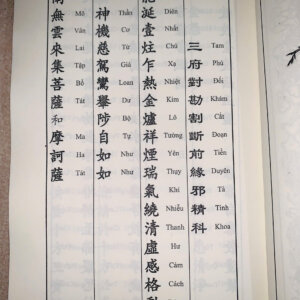 三府對勘割斷前緣邪精科
Tam Phủ Đối Khám Cắt Đoạn Tiền Duyên Tà Tinh Khoa
涎壹炷乍熱金爐祥煙瑞氣繞清虛感格
Diên Nhất Chú Xạ Nhiệt Kim Lô Tường Yên Thụy Khí Nhiễu Thanh Hư Cảm Cách
神機慈駕鸞舉陟自如如
Thần Cơ Từ Giá Loan Dư Bộ Tự Như Như
無雲來集菩薩和摩訶薩
Mô Vân Lai Tập Bồ Tát Ma Ha Tát